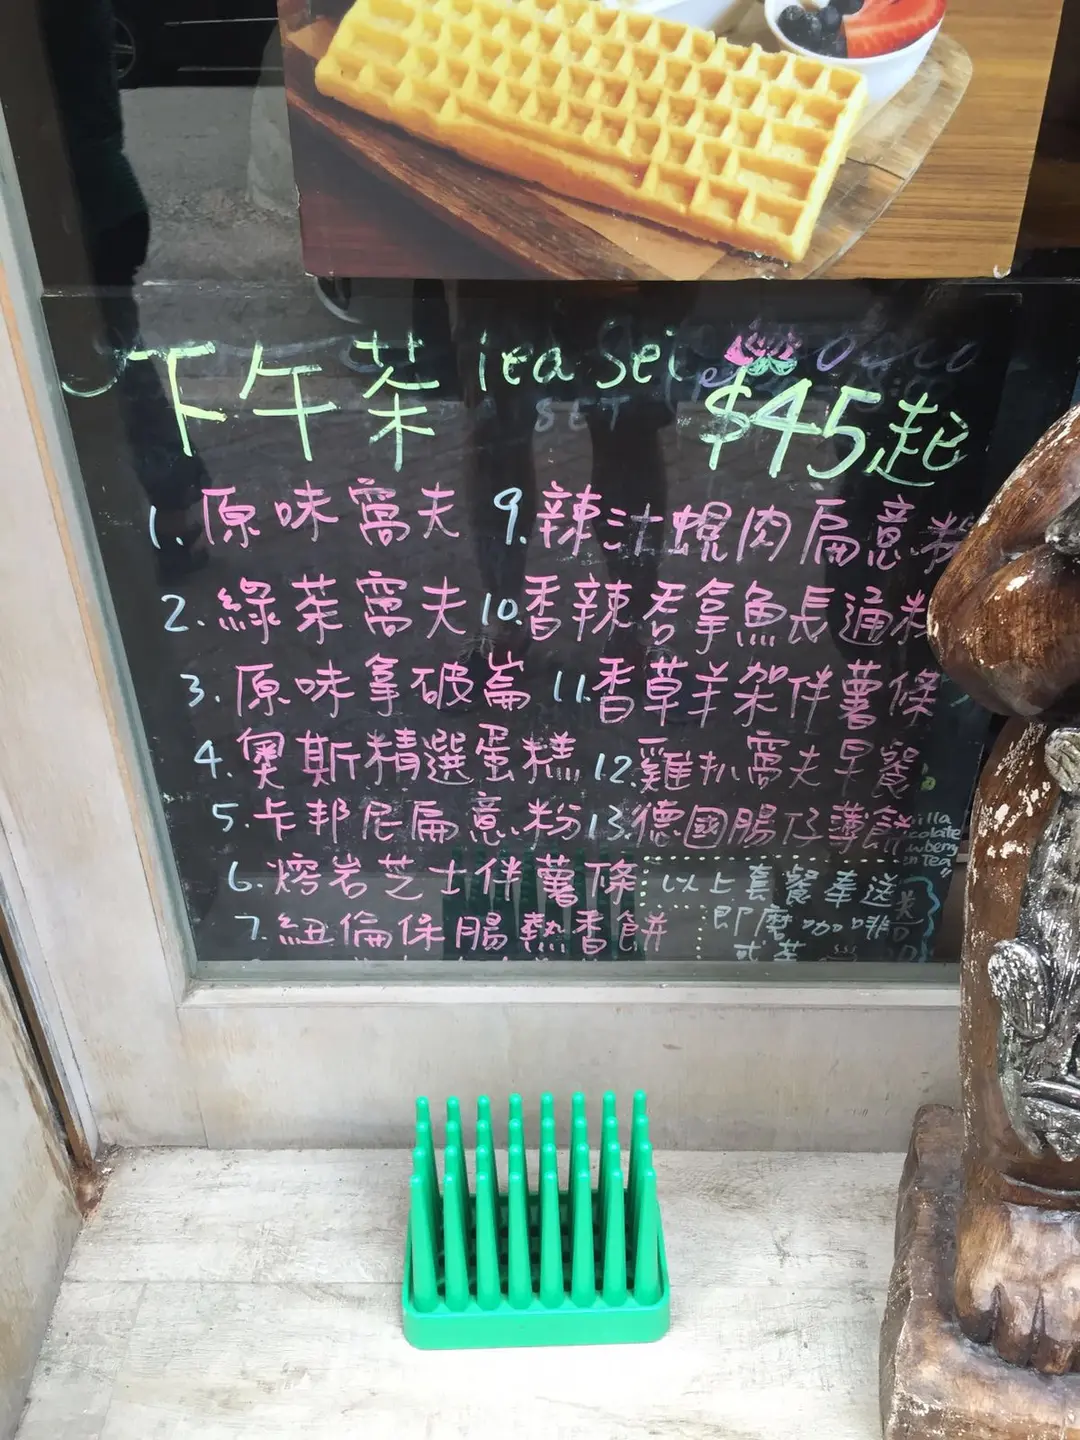 下午茶 Tea Set $45起
SET
1. 原味窩夫
2. 綠茶窩夫
3. 原味拿破崙
4. 奧斯精選蛋糕
5. 卡邦尼扁意粉
6. 熔岩芝士伴薯條
7. 紐倫保腸熱香餅
9. 辣汁蜆肉扁意粉
10. 香辣吞拿魚長通粉
11. 香草羊架伴薯條
12. 雞扒窩夫早餐
13. 德國腸仔薄餅
以上套餐奉送
即磨咖啡
或茶